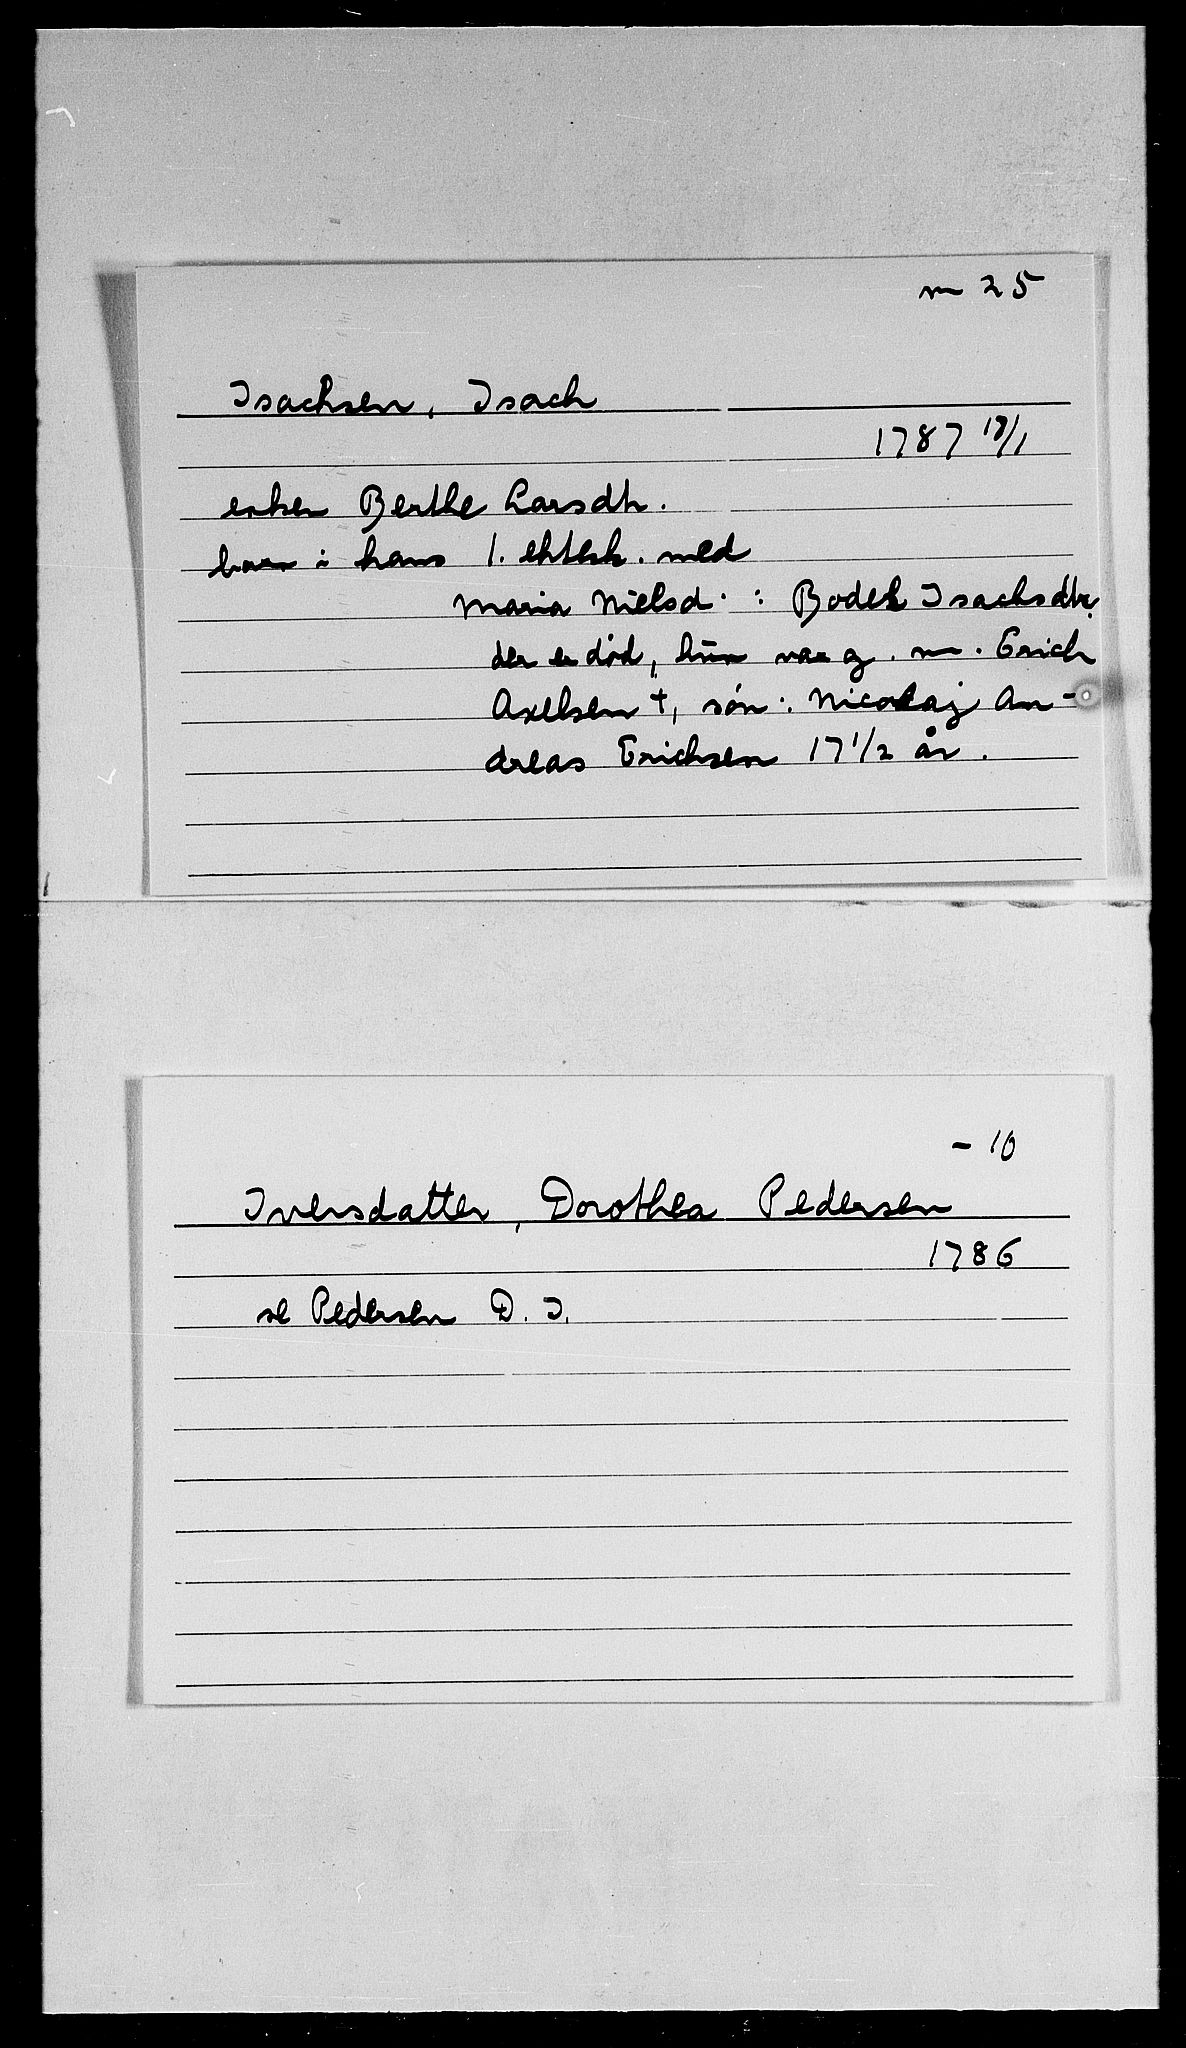 m 25
Isachsen, Isach
1787 18/1
enken Berthe Larsdtr.
barn i hans 1. ektesk. med
Maria Nielsd. : Bodel Isachsdtr.
der er død, hun var g. m. Erich
Axelsen †, søn: Nicolaj An-
dreas Erichsen 17 1/2 år.
- 10
Iversdatter, Dorothea Pedersen
1786
se Pedersen D. I.